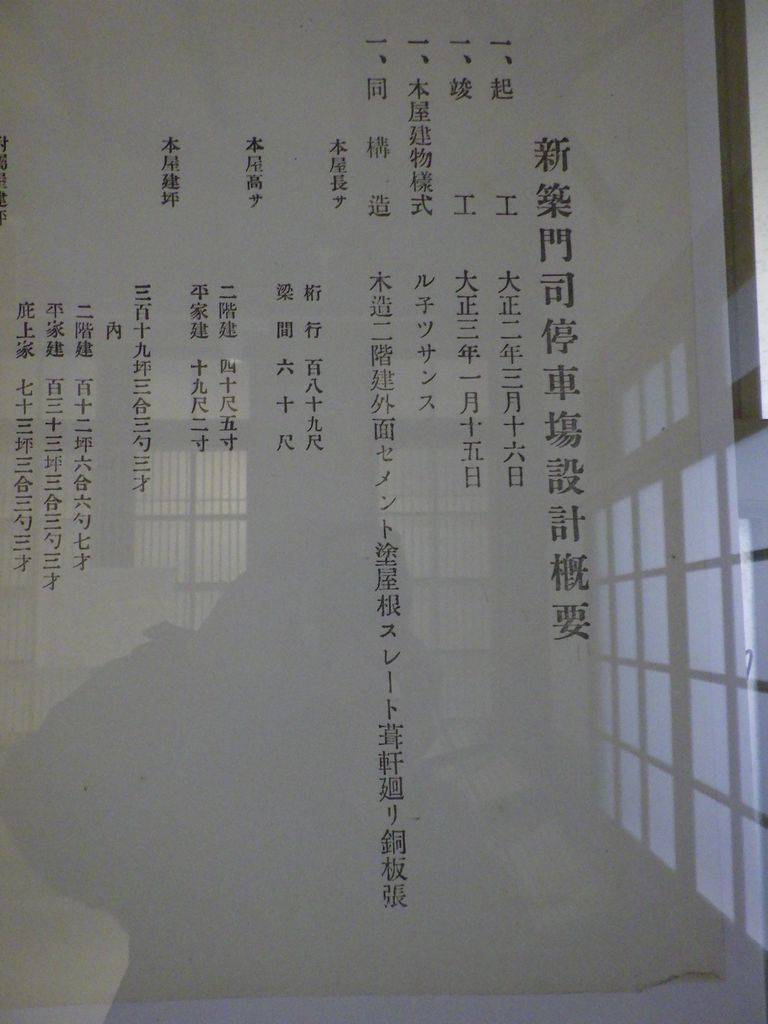 新築門司停車塲設計概要
一、起工 大正二年三月十六日
一、竣工 大正三年一月十五日
一、本屋建物樣式 ル子ツサンス
一、同構造 木造二階建外面セメント塗屋根スレート葺軒廻リ銅板張
本屋長サ
桁行 百八十九尺
梁間 六十尺
本屋高サ
二階建 四十尺五寸
平家建 十九尺二寸
本屋建坪
三百十九坪三合三勺三才
內
二階建 百十二坪六合六勺七才
平家建 百三十三坪三合三勺三才
庇上家 七十三坪三合三勺三才